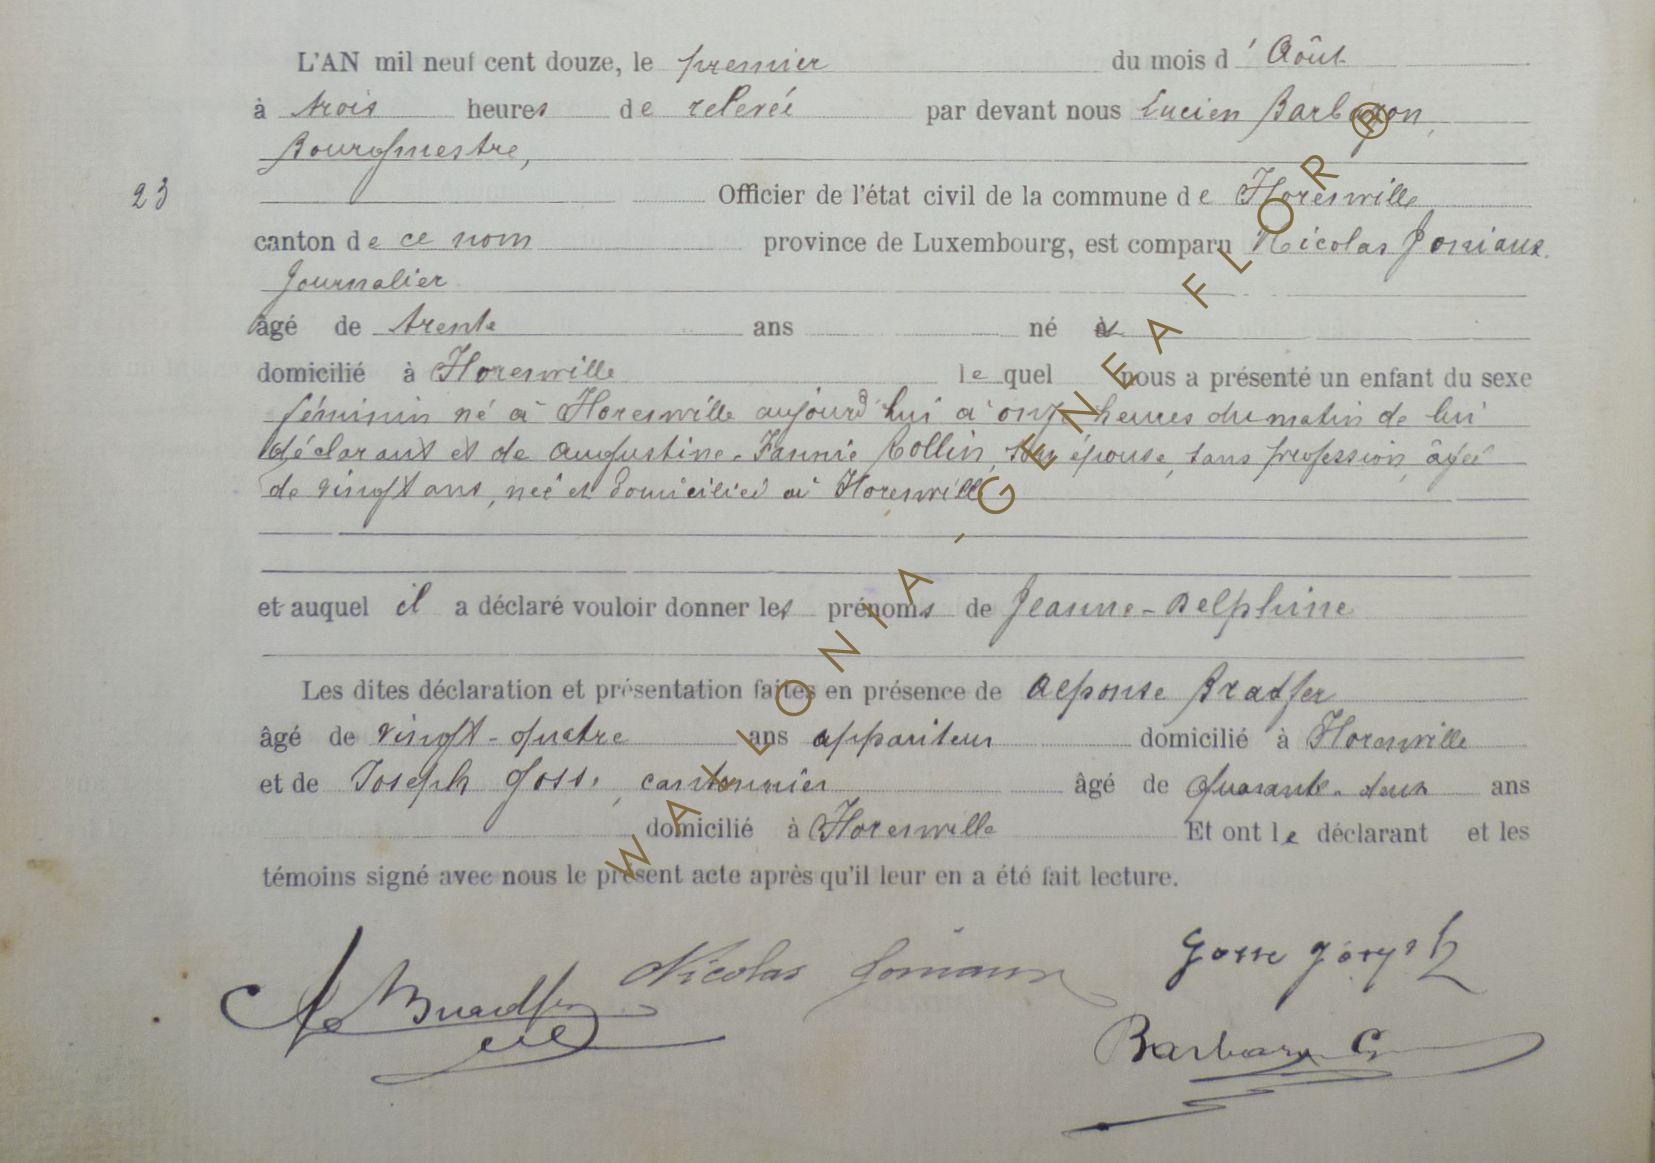 L'AN mil neuf cent douze, le premier du mois d' Août
à trois heures de relevée par devant nous Lucien Barbazon,
Bourgmestre,
23 Officier de l'état civil de la commune de Florenville
canton de ce nom province de Luxembourg, est comparu Nicolas Joniaux.
Journalier
âgé de trente ans né à
domicilié à Florenville lequel nous a présenté un enfant du sexe
féminin né à Florenville aujourd'hui à onze heures du matin de lui
déclarant et de Augustine-Fannie Collin, son épouse, sans profession, âgée
de vingt ans, née et domiciliée à Florenville
et auquel il a déclaré vouloir donner les prénoms de Jeanne-Delphine
Les dites déclaration et présentation faites en présence de Alponse Bradfer
âgé de vingt-quatre ans appariteur domicilié à Florenville
et de Joseph Gosse, cantonnier âgé de quarante-deux ans
domicilié à Florenville Et ont le déclarant et les
témoins signé avec nous le présent acte après qu'il leur en a été fait lecture.
Nicolas Joniaux Gosse Joseph
A Bradfer
WALLONIA-GENEAFLOR®